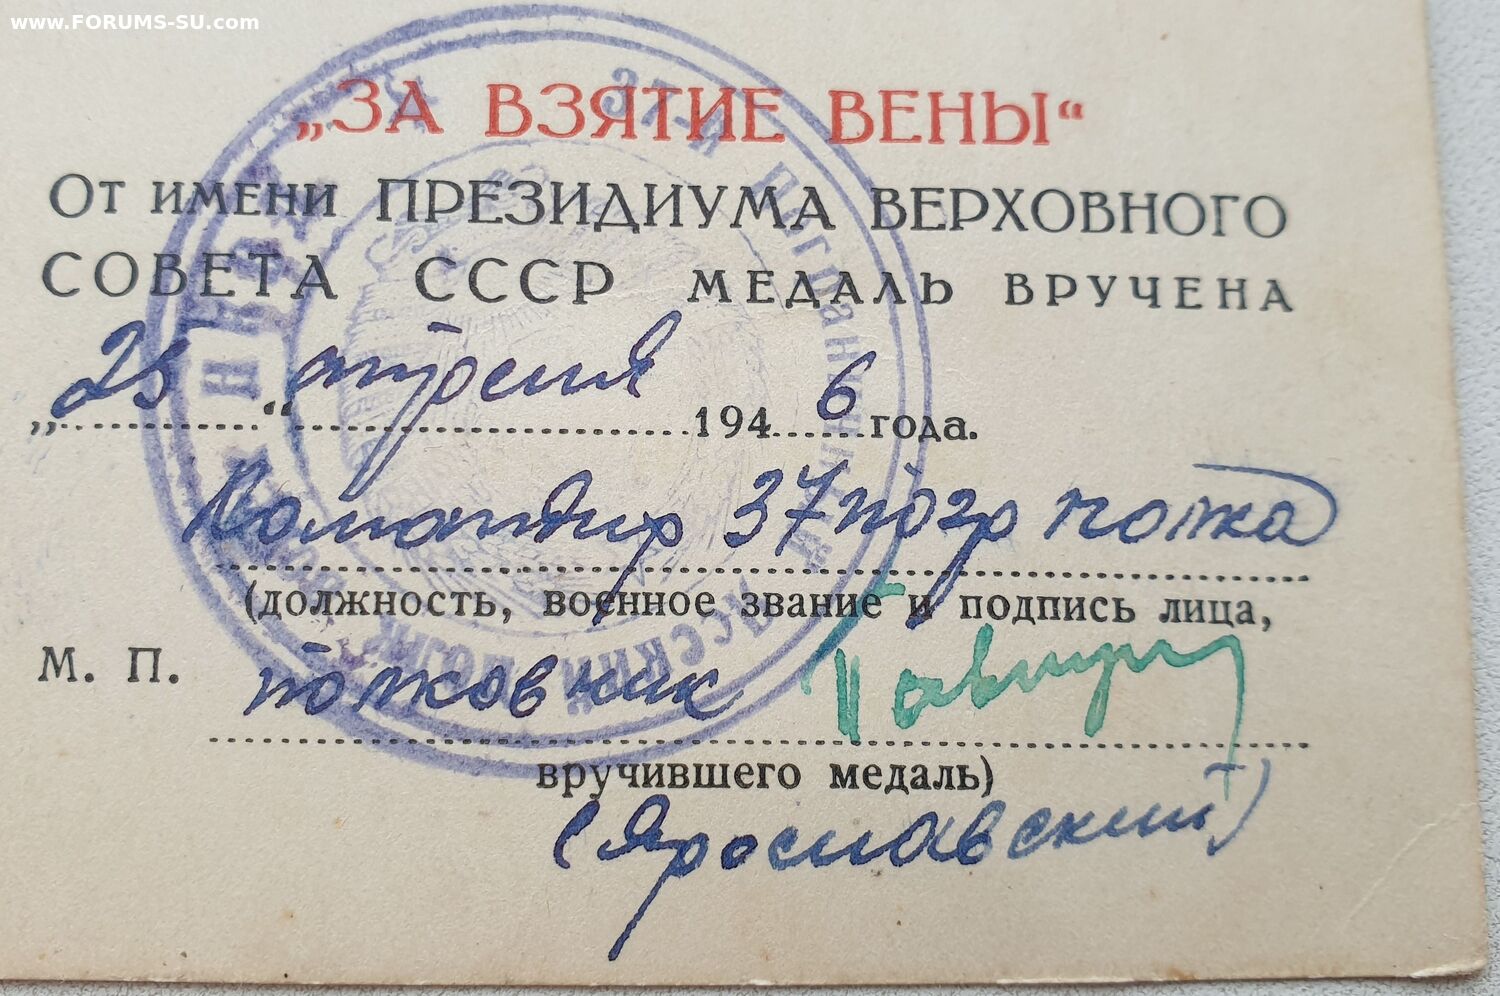 www.FORUMS-SU.com
„ЗА ВЗЯТИЕ ВЕНЫ“
От имени ПРЕЗИДИУМА ВЕРХОВНОГО
СОВЕТА СССР МЕДАЛЬ ВРУЧЕНА
„25“ апреля 1946 года.
Командир 37 погр полка
(должность, военное звание и подпись лица,
М. П. полковник
вручившего медаль)
(Ярославский)
37-й Пограничный
ский полк